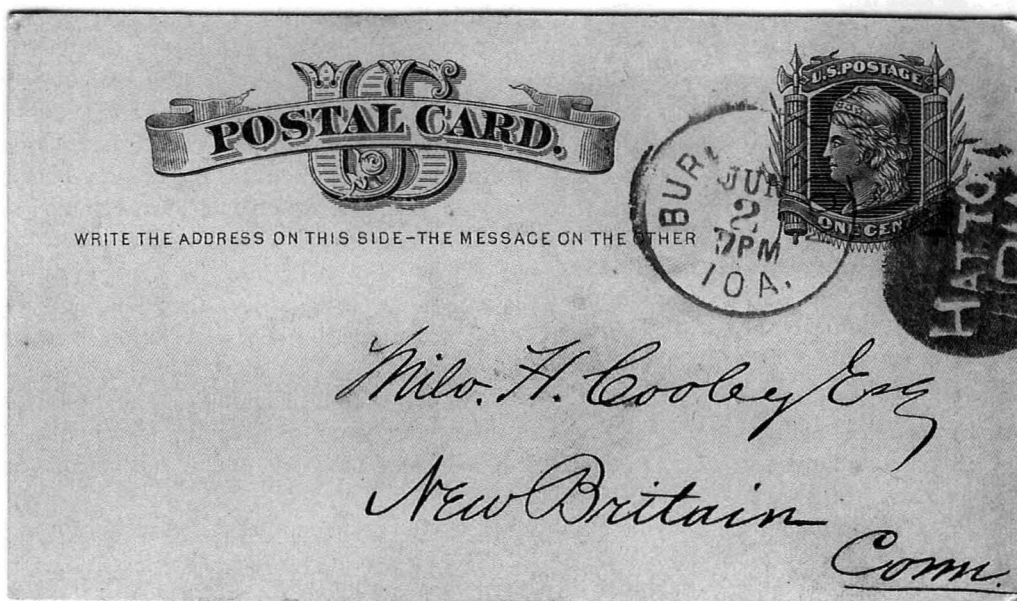 US
POSTAL CARD.
U.S. POSTAGE
ONE CENT
WRITE THE ADDRESS ON THIS SIDE-THE MESSAGE ON THE OTHER
BUR
JUN
2
7PM
IOA.
HATTO
Milo. H. Cooley Esq
New Britain
Conn.